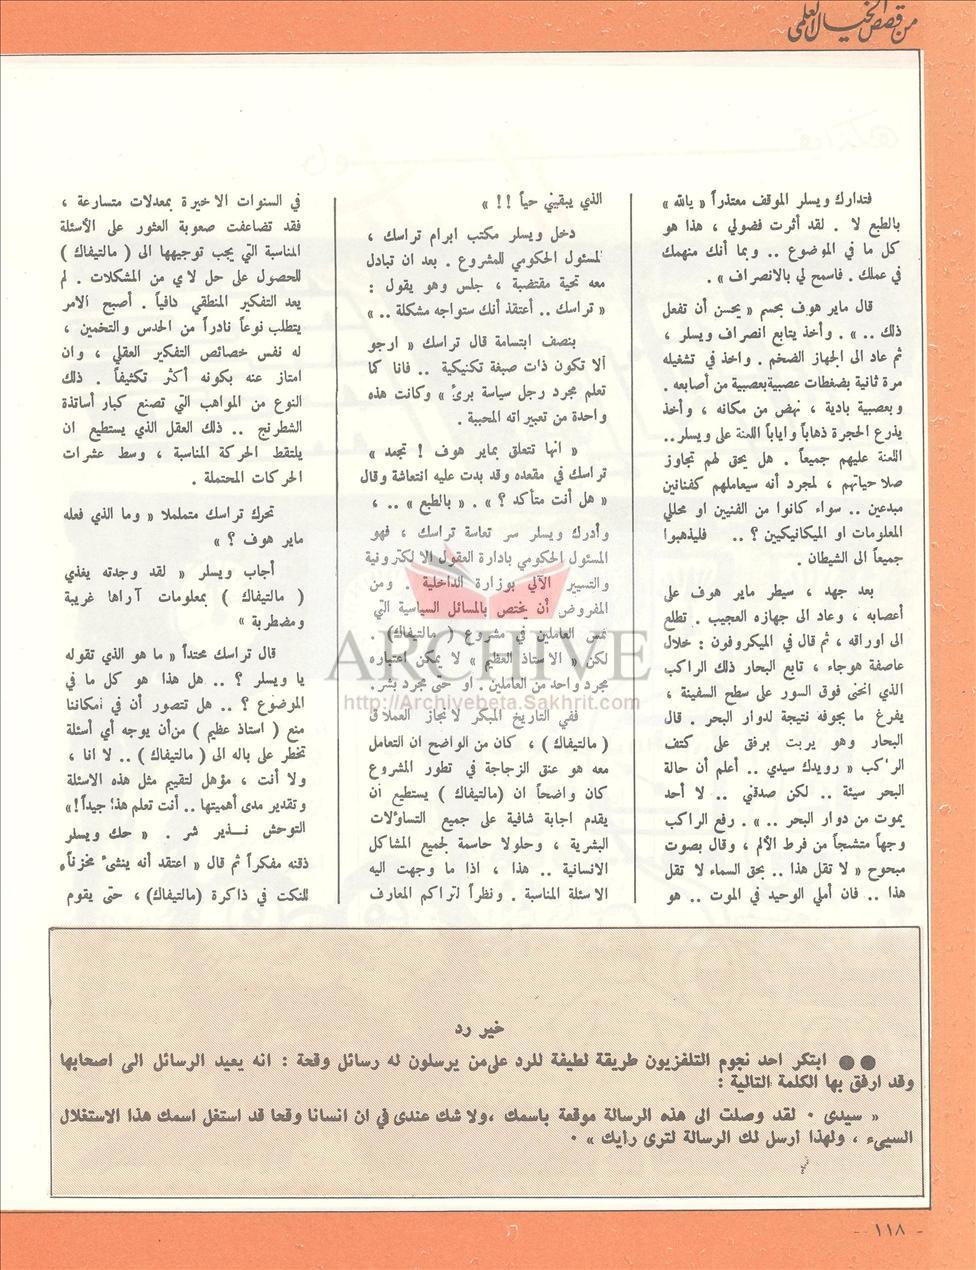 من قصص الخيال العلمى
فتدارك ويسلر الموقف معتذراً « يالله »
بالطبع لا . لقد أثرت فضولي ، هذا هو
كل ما في الموضوع .. وبما أنك منهمك
في عملك . فاسمح لي بالانصراف » .
قال ماير هوف بحسم « يحسن أن تفعل
ذلك .. » . وأخذ يتابع انصراف ويسلر ،
ثم عاد الى الجهاز الضخم . واخذ في تشغيله
مرة ثانية بضغطات عصبيةبعصبية من أصابعه .
وبعصبية بادية ، نهض من مكانه ، وأخذ
يذرع الحجرة ذهاباً واياباً اللعنة على ويسلر..
اللعنة عليهم جميعاً . هل يحق لهم تجاوز
صلاحياتهم ، لمجرد أنه سيعاملهم كفنانين
مبدعين .. سواء كانوا من الفنيين او محللي
المعلومات او الميكانيكيين ؟ .. فليذهبوا
جميعاً الى الشيطان .
بعد جهد ، سيطر ماير هوف على
أعصابه ، وعاد الى جهازه العجيب . تطلع
الى اوراقه ، ثم قال في الميكروفون : خلال
عاصفة هوجاء ، تابع البحار ذلك الراكب
الذي انحنى فوق السور على سطح السفينة ،
يفرغ ما بجوفه نتيجة لدوار البحر . قال
البحار وهو يربت برفق على كتف
الراكب « رويدك سيدي .. أعلم أن حالة
البحر سيئة .. لكن صدقني .. لا أحد
يموت من دوار البحر .. » . رفع الراكب
وجهاً متشنجاً من فرط الألم ، وقال بصوت
مبحوح « لا تقل هذا .. بحق السماء لا تقل
هذا .. فان أملي الوحيد في الموت .. هو
الذي يبقيني حياً ! ! »
دخل ويسلر مكتب ابرام تراسك ،
لمسئول الحكومي للمشروع . بعد ان تبادل
معه تحية مقتضبة ، جلس وهو يقول :
« تراسك .. أعتقد أنك ستواجه مشكلة .. »
بنصف ابتسامة قال تراسك « ارجو
الا تكون ذات صبغة تكنيكية .. فانا كما
تعلم مجرد رجل سياسة برئ » وكانت هذه
واحدة من تعبيراته المحببة .
« انها تتعلق بماير هوف ! تجمد »
تراسك في مقعده وقد بدت عليه انتعاشة وقال
« هل أنت متأكد ؟ » . « بالطبع » .. ،
وأدرك ويسلر سر تعاسة تراسك ، فهو
المسئول الحكومي بادارة العقول الالكترونية
والتسيير الآلي بوزارة الداخلية . ومن
المفروض أن يختص بالمسائل السياسية التي
تمس العاملين في مشروع ( مالتيفاك) .
لكن « الاستاذ العظيم » لا يمكن اعتباره
مجرد واحد من العاملين . او حتى مجرد بشر.
ففي التاريخ المبكر لانجاز العملاق
( مالتيفاك) ، كان من الواضح ان التعامل
معه هو عنق الزجاجة في تطور المشروع
كان واضحاً ان (مالتيفاك ) يستطيع أن
يقدم اجابة شافية على جميع التساؤلات
البشرية ، وحلولا حاسمة لجميع المشاكل
الانسانية .. هذا ، اذا ما وجهت اليه
الاسئلة المناسبة . ونظراً لتراكم المعارف
في السنوات الاخيرة بمعدلات متسارعة ،
فقد تضاعفت صعوبة العثور على الأسئلة
المناسبة التي يجب توجيهها الى ( مالتيفاك )
للحصول على حل لاي من المشكلات . لم
يعد التفكير المنطقي دافياً . أصبح الامر
يتطلب نوعاً نادراً من الحدس والتخمين ،
له نفس خصائص التفكير العقلي ، وان
امتاز عنه بكونه أكثر تكثيفاً . ذلك
النوع من المواهب التي تصنع كبار أساتذة
الشطرنج .. ذلك العقل الذي يستطيع ان
يلتقط الحركة المناسبة ، وسط عشرات
الحركات المحتملة .
تحرك تراسك متململا « وما الذي فعله
ماير هوف ؟ »
أجاب ويسلر « لقد وجدته يغذي
( مالتيفاك ) بمعلومات آراها غريبة
ومضطربة »
قال تراسك محتداً « ما هو الذي تقوله
يا ويسلر ؟ .. هل هذا هو كل ما في
الموضوع ؟ .. هل تتصور أن في امكاننا
منع ( استاذ عظيم ) منأن يوجه أي أسئلة
تخطر على باله الى (مالتيفاك ) .. لا انا ،
ولا أنت ، مؤهل لتقييم مثل هذه الاسئلة
وتقدير مدى أهميتها .. أنت تعلم هذا جيداً!»
التوحش نــذير شر . « حك ويسلر
ذقنه مفكراً ثم قال « اعتقد أنه ينشئ مخزناً
للنكت في ذاكرة (مالتيفاك) ، حتى يقوم
ARCHIVE
http://Archivebeta.Sakhrit.com
خير رد
●● ابتكر احد نجوم التلفزيون طريقة لطيفة للرد علىمن يرسلون له رسائل وقحة : انه يعيد الرسائل الى اصحابها
وقد ارفق بها الكلمة التالية :
« سيدى . لقد وصلت الى هذه الرسالة موقعة باسمك ،ولا شك عندى في ان انسانا وقحا قد استغل اسمك هذا الاستغلال
السيىء ، ولهذا ارسل لك الرسالة لترى رأيك » .
- ١١٨ -